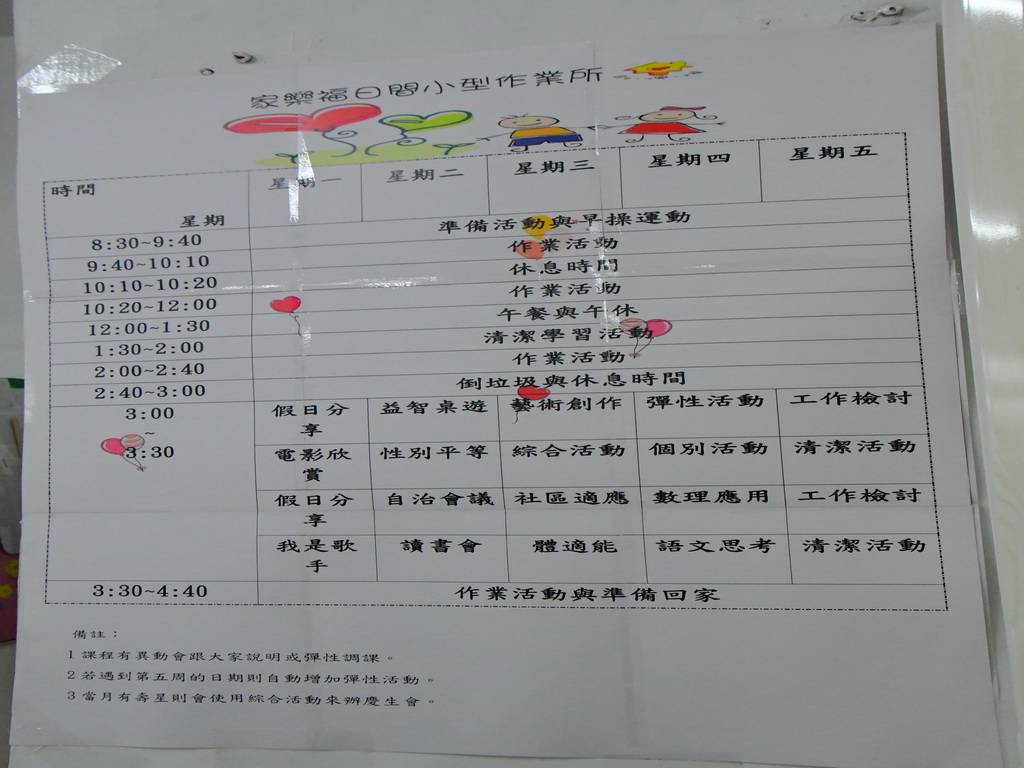 家樂福日間小型作業所
時間 星期 星期一 星期二 星期三 星期四 星期五
8:30~9:40 準備活動與早操運動
9:40~10:10 作業活動
10:10~10:20 休息時間
10:20~12:00 作業活動
12:00~1:30 午餐與午休
1:30~2:00 清潔學習活動
2:00~2:40 作業活動
2:40~3:00 倒垃圾與休息時間
3:00~3:30 假日分享 益智桌遊 藝術創作 彈性活動 工作檢討
電影欣賞 性別平等 綜合活動 個別活動 清潔活動
假日分享 自治會議 社區適應 數理應用 工作檢討
我是歌手 讀書會 體適能 語文思考 清潔活動
3:30~4:40 作業活動與準備回家
備註：
1 課程有異動會跟大家說明或彈性調課。
2 若遇到第五周的日期則自動增加彈性活動。
3 當月有壽星則會使用綜合活動來辦慶生會。